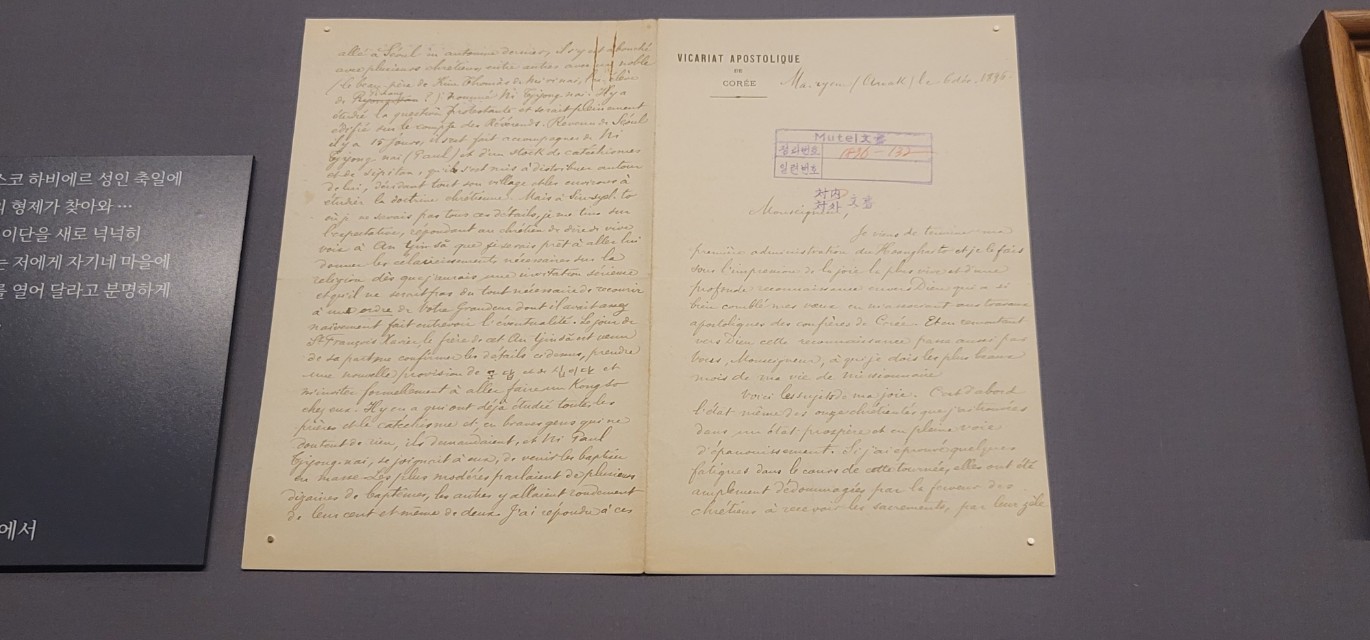 스코 하비에르 성인 축일에
형제가 찾아와 …
이단을 새로 넉넉히
는 저에게 자기네 마을에
를 열어 달라고 분명하게
에서
allé à Séoul in automne dernier, il s'y est abouché
avec plusieurs chrétiens, entre autres avec un noble
(le beau-père de Kim
de
étudié la question protestante et serait pleinement
édifié sur le compte des Révérends. Revenu de Séoul
il y a 15 jours, il s'est fait accompagner de Ni
Tjyong-nai (Paul) et d'un stock de catéchismes
qu'il s'est mis à distribuer autour
de lui, décidant tout son village et les environs à
étudier la doctrine chrétienne. Mais à
où je ne savais pas tous ces détails, je me tins sur
l'expectative, répondant au chrétien de dire de vive
voix à An Tjinsa que je serais prêt à aller lui
donner les éclaircissements nécessaires sur la
religion dès que j'aurais une invitation sérieuse
et qu'il ne serait pas du tout nécessaire de recourir
à un ordre de Votre Grandeur dont il avait assez
naïvement fait entrevoir l'éventualité. Le jour de
St François Xavier, le frère de cet An Tjinsa est venu
de sa part me confirmer les détails ci-dessus, prendre
une nouvelle provision de 문답 et de 십이단 et
m'inviter formellement à aller faire un Kong-so
chez eux. Il y en a qui ont déjà étudié toutes les
prières et le catéchisme et, en braves gens qui ne
doutent de rien, ils demandaient, et Ni Paul
Tjyong-nai, se joignait à eux, de venir les baptiser
en masse. Les plus modérés parlaient de plusieurs
dizaines de baptêmes, les autres y allaient rondement
de leur cent et même de deux. J'ai répondu à ces
VICARIAT APOSTOLIQUE
DE
CORÉE
Ma-ryem (Anak) le 6 déc. 1896.
Mutel 文書
정리번호 1896-132
일련번호
対内
対外 文書
Monseigneur,
Je viens de terminer ma
première administration du Hoanghai-to et je le fais
sous l'impression de la joie la plus vive et d'une
profonde reconnaissance envers Dieu qui a si
bien comblé mes vœux en m'associant aux travaux
apostoliques des confrères de Corée. Et en remontant
vers Dieu cette reconnaissance passe aussi par
vous, Monseigneur, à qui je dois les plus beaux
mois de ma vie de missionnaire.
Voici les sujets de ma joie. C'est d'abord
l'état même des onze chrétientés que j'ai trouvées
dans un état prospère et en pleine voie
d'épanouissement. Si j'ai éprouvé quelques
fatigues dans le cours de cette tournée, elles ont été
amplement dédommagées par la ferveur des
chrétiens à recevoir les sacrements, par leur zèle